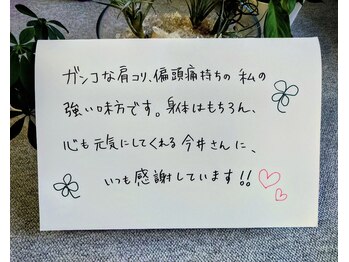 ガンコな肩コリ、偏頭痛持ちの私の
強い味方です。身体はもちろん、
心も元気にしてくれる今井さんに、
いつも感謝しています!!